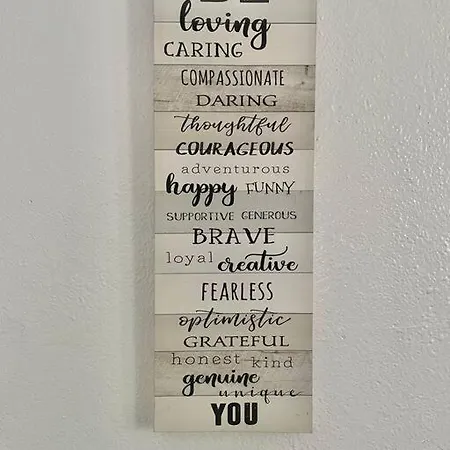 BE
loving
CARING
COMPASSIONATE
DARING
thoughtful
COURAGEOUS
adventurous
happy FUNNY
SUPPORTIVE GENEROUS
BRAVE
loyal creative
FEARLESS
optimistic
GRATEFUL
honest kind
genuine
unique
YOU